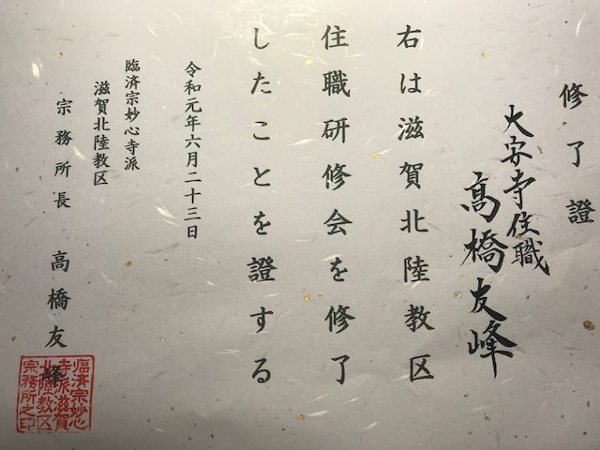 修了證
大安寺住職
高橋友峰
右は滋賀北陸教区
住職研修会を修了
したことを證する
令和元年六月二十三日
臨済宗妙心寺派
滋賀北陸教区
宗務所長 高橋友峰
臨済宗妙心
寺派滋賀
北陸教区
宗務所之印